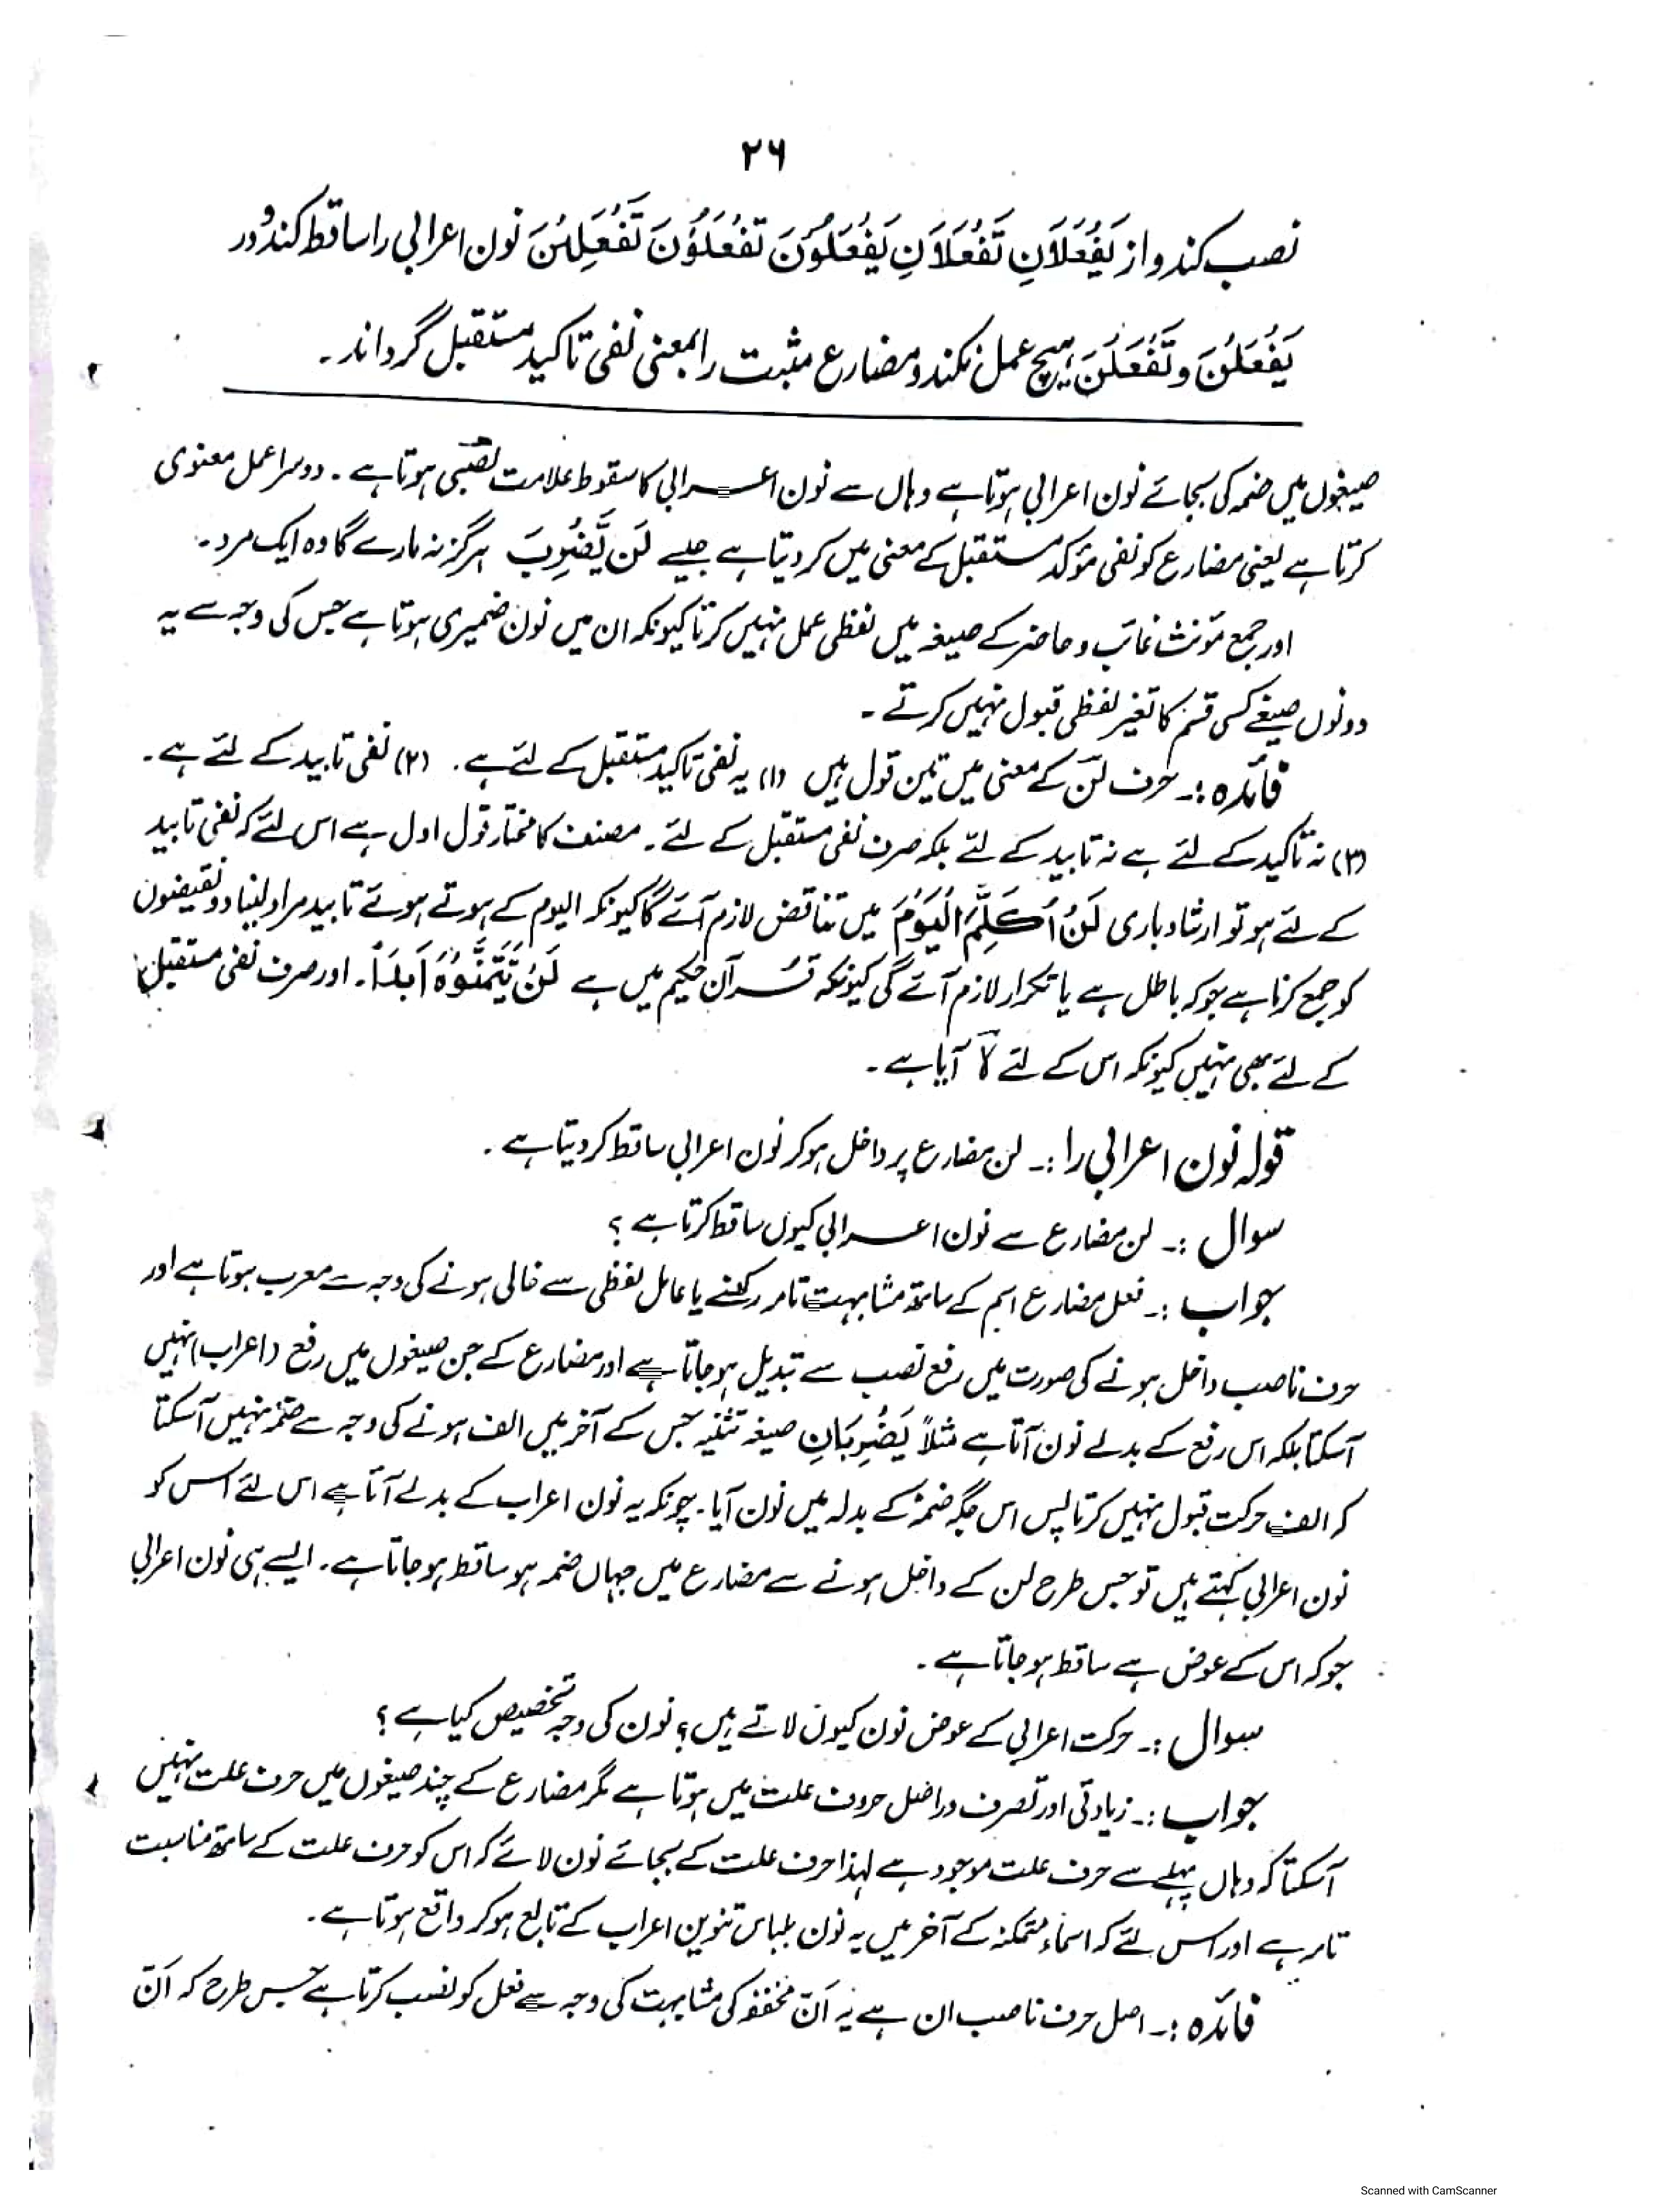 ۲۶
نصب کند و از یَفْعَلَانِ تَفْعَلَانِ یَفْعَلُوْنَ تَفْعَلُوْنَ تَفْعَلِیْنَ نون اعرابی را ساقط کند و در
یَفْعَلْنَ و تَفْعَلْنَ ہیچ عمل نکند و مضارع مثبت را بمعنی نفی تاکید مستقبل گرداند۔
صیغوں میں ضمہ کی بجائے نون اعرابی ہوتا ہے وہاں سے نون اعرابی کا سقوط علامت نصبی ہوتا ہے۔ دوسرا عمل معنوی
کرتا ہے یعنی مضارع کو نفی مؤکد مستقبل کے معنی میں کر دیتا ہے جیسے لَن یَّضْرِبَ ہرگز نہ مارے گا وہ ایک مرد۔
اور جمع مؤنث غائب و حاضر کے صیغہ میں لفظی عمل نہیں کرتا کیونکہ ان میں نون ضمیری ہوتا ہے جس کی وجہ سے یہ
دونوں صیغے کسی قسم کا تغیر لفظی قبول نہیں کرتے۔
فائدہ :۔ حرف لَنْ کے معنی میں تین قول ہیں (۱) یہ نفی تاکید مستقبل کے لئے ہے۔ (۲) نفی تابید کے لئے ہے۔
(۳) نہ تاکید کے لئے ہے نہ تابید کے لئے بلکہ صرف نفی مستقبل کے لئے۔ مصنف کا مختار قول اول ہے اس لئے کہ نفی تابید
کے لئے ہو تو ارشاد باری لَنْ اُکَلِّمَ الْیَوْمَ میں تناقض لازم آئے گا کیونکہ الیوم کے ہوتے ہوئے تابید مراد لینا دو نقیضوں
کو جمع کرنا ہے جو کہ باطل ہے یا تکرار لازم آئے گی کیونکہ قرآن حکیم میں ہے لَنْ یَّتَمَنَّوْہُ اَبَدًا۔ اور صرف نفی مستقبل
کے لئے بھی نہیں کیونکہ اس کے لئے لَا آیا ہے۔
قولہ نون اعرابی را :۔ لن مضارع پر داخل ہو کر نون اعرابی ساقط کر دیتا ہے۔
سوال :۔ لن مضارع سے نون اعرابی کیوں ساقط کرتا ہے ؟
جواب :۔ فعل مضارع اسم کے ساتھ مشابہت تامہ رکھنے یا عامل لفظی سے خالی ہونے کی وجہ سے معرب ہوتا ہے اور
حرف ناصب داخل ہونے کی صورت میں رفع نصب سے تبدیل ہو جاتا ہے اور مضارع کے جن صیغوں میں رفع (اعراب) نہیں
آسکتا بلکہ اس رفع کے بدلے نون آتا ہے مثلاً یَضْرِبَانِ صیغہ تثنیہ جس کے آخر میں الف ہونے کی وجہ سے ضمہ نہیں آسکتا
کہ الف حرکت قبول نہیں کرتا پس اس جگہ ضمہ کے بدلہ میں نون آیا۔ چونکہ یہ نون اعراب کے بدلے آتا ہے اس لئے اس کو
نون اعرابی کہتے ہیں تو جس طرح لن کے داخل ہونے سے مضارع میں جہاں ضمہ ہو ساقط ہو جاتا ہے۔ ایسے ہی نون اعرابی
جو کہ اس کے عوض ہے ساقط ہو جاتا ہے۔
سوال :۔ حرکت اعرابی کے عوض نون کیوں لاتے ہیں؟ نون کی وجہ تخصیص کیا ہے ؟
جواب :۔ زیادتی اور تصرف دراصل حروف علت میں ہوتا ہے مگر مضارع کے چند صیغوں میں حرف علت نہیں
آسکتا کہ وہاں پہلے سے حرف علت موجود ہے لہذا حرف علت کے بجائے نون لائے کہ اس کو حرف علت کے ساتھ مناسبت
تامہ ہے اور اس لئے کہ اسماء متمکنہ کے آخر میں یہ نون بلباس تنوین اعراب کے تابع ہو کر واقع ہوتا ہے۔
فائدہ :۔ اصل حرف ناصب ان ہے یہ اَنّ مخففہ کی مشابہت کی وجہ سے فعل کو نصب کرتا ہے جس طرح کہ اَنّ
Scanned with CamScanner